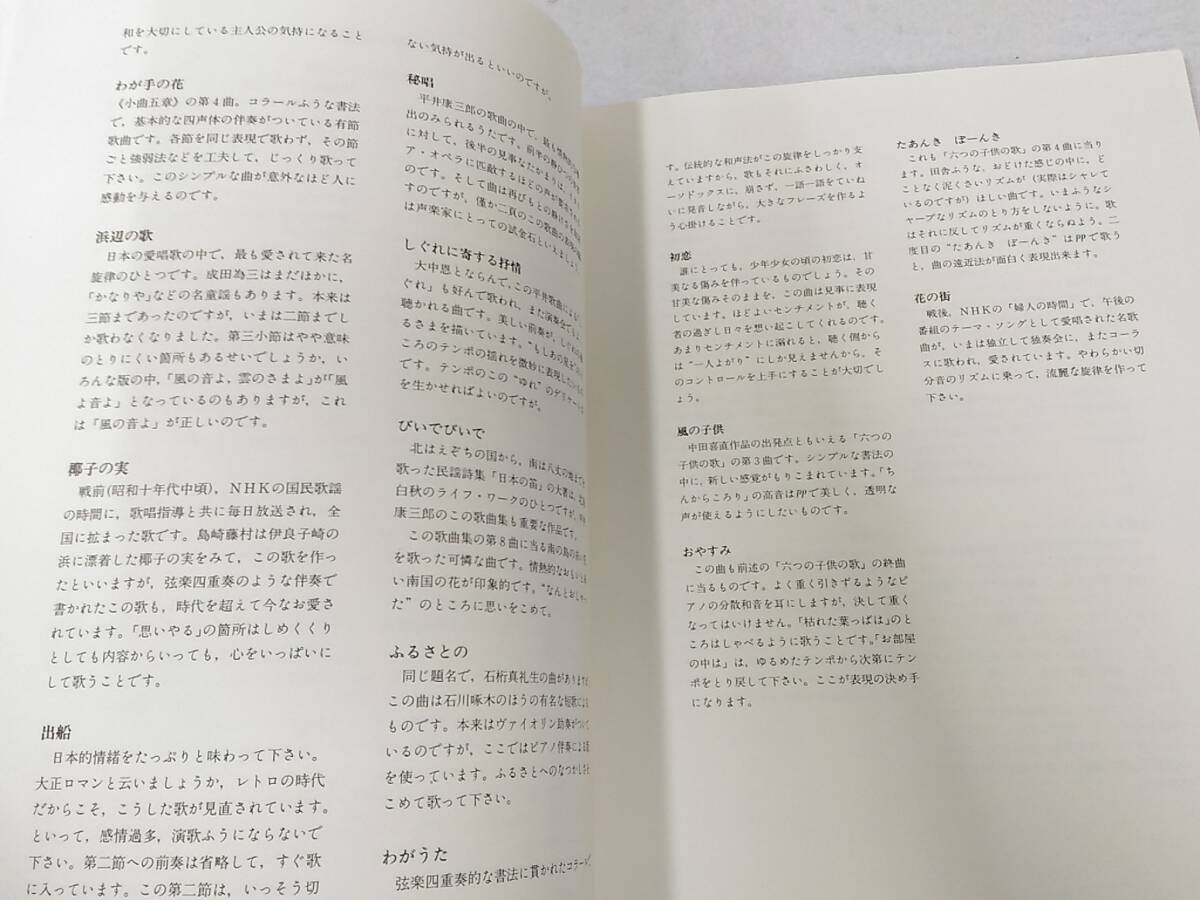 和を大切にしている主人公の気持になること
です。
わが手の花
《小曲五章》の第4曲。コラールふうな書法
で，基本的な四声体の伴奏がついている有節
歌曲です。各節を同じ表現で歌わず，その節
ごと強弱法などを工夫して，じっくり歌って
下さい。このシンプルな曲が意外なほど人に
感動を与えるのです。
浜辺の歌
日本の愛唱歌の中で，最も愛されて来た名
旋律のひとつです。成田為三はまだほかに，
「かなりや」などの名童謡もあります。本来は
三節まであったのですが，いまは二節までし
か歌わなくなりました。第三小節はやや意味
のとりにくい箇所もあるせいでしょうか，い
ろんな版の中，「風の音よ，雲のさまよ」が「風
よ音よ」となっているのもありますが，これ
は「風の音よ」が正しいのです。
椰子の実
戦前(昭和十年代中頃)，NHKの国民歌謡
の時間に，歌唱指導と共に毎日放送され，全
国に拡まった歌です。島崎藤村は伊良子崎の
浜に漂着した椰子の実をみて，この歌を作っ
たといいますが，弦楽四重奏のような伴奏で
書かれたこの歌も，時代を超えて今なお愛さ
れています。「思いやる」の箇所はしめくくり
としても内容からいっても，心をいっぱいに
して歌うことです。
出船
日本的情緒をたっぷりと味わって下さい。
大正ロマンと云いましょうか，レトロの時代
だからこそ，こうした歌が見直されています。
といって，感情過多，演歌ふうにならないで
下さい。第二節への前奏は省略して，すぐ歌
に入っています。この第二節は，いっそう切
ない気持が出るといいのですが。
秘唱
平井康三郎の歌曲の中で，最も
出のみられるうたです。前半の
に対して，後半の見事なたかまりは，
ア・オペラに匹敵するほどの声が要求される
のです。そして曲は再びもとの静けさを
すのですが，僅か二頁のこの歌曲の表現の幅
は声楽家にとっての試金石といえましょう。
しぐれに寄する抒情
大中恩とならんで，この平井歌曲による
ぐれ」も好んで歌われ，また演奏会でもよ
聴かれる曲です。美しい前奏が，しぐれの
るさまを描いています。“もしあの
ころのテンポの揺れを微妙に表現したいもの
です。テンポのこの“ゆれ”のデリケートな
を生かせればよいのですが。
びいでびいで
北はえぞちの国から，南は八丈の地まで
歌った民謡詩集「日本の笛」の大著は，北原
白秋のライフ・ワークのひとつですが，平井
康三郎のこの歌曲集も重要な作品です。
この歌曲集の第8曲に当る南の島の赤い花
を歌った可憐な曲です。情熱的なおもいと
い南国の花が印象的です。“なんとおしゃっ
た”のところに思いをこめて。
ふるさとの
同じ題名で，石桁真礼生の曲がありますが
この曲は石川啄木のほうの有名な短歌による
ものです。本来はヴァイオリン助奏がついて
いるのですが，ここではピアノ伴奏による版
を使っています。ふるさとへのなつかしさを
こめて歌って下さい。
わがうた
弦楽四重奏的な書法に貫かれたコラール
す。伝統的な和声法がこの旋律をしっかり支
えていますから，歌もそれにふさわしく，オ
ーソドックスに，崩さず，一語一語をていね
いに発音しながら，大きなフレーズを作るよ
う心掛けることです。
初恋
誰にとっても，少年少女の頃の初恋は，甘
美なる傷みを伴っているものでしょう。その
甘美な傷みそのままを，この曲は見事に表現
しています。ほどよいセンチメントが，聴く
者の過ぎし日々を想い起こしてくれるのです。
あまりセンチメントに溺れると，聴く側から
は“一人よがり”にしか見えませんから，そ
のコントロールを上手にすることが大切でし
ょう。
風の子供
中田喜直作品の出発点ともいえる「六つの
子供の歌」の第3曲です。シンプルな書法の
中に，新しい感覚がもりこまれています。「ち
んからころり」の高音はppで美しく，透明な
声が使えるようにしたいものです。
おやすみ
この曲も前述の「六つの子供の歌」の終曲
に当るものです。よく重く引きずるようなピ
アノの分散和音を耳にしますが，決して重く
なってはいけません。「枯れた葉っぱは」のと
ころはしゃべるように歌うことです。「お部屋
の中は」は，ゆるめたテンポから次第にテン
ポをとり戻して下さい。ここが表現の決め手
になります。
たあんき ぽーんき
これも「六つの子供の歌」の第4曲に当り
ます。田舎ふうな，おどけた感じの中に，ど
ことなく泥くさいリズムが（実際はシャレて
いるのですが）ほしい曲です。いまふうなシ
ャープなリズムのとり方をしないように。歌
はそれに反してリズムが重くならぬよう。二
度目の“たあんき ぽーんき”はppで歌う
と，曲の遠近法が面白く表現出来ます。
花の街
戦後，NHKの「婦人の時間」で，午後の
番組のテーマ・ソングとして愛唱された名歌
曲が，いまは独立して独奏会に，またコーラ
スに歌われ，愛されています。やわらかい切
分音のリズムに乗って，流麗な旋律を作って
下さい。